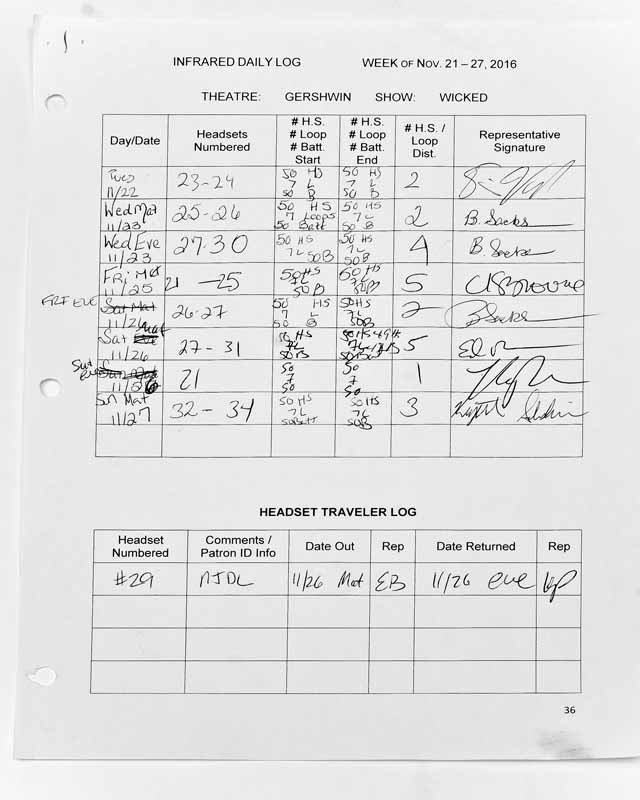 INFRARED DAILY LOG WEEK OF NOV. 21 – 27, 2016
THEATRE: GERSHWIN SHOW: WICKED
Day/Date Headsets Numbered # H.S. # Loop # Batt. Start # H.S. # Loop # Batt. End # H.S. / Loop Dist. Representative Signature
Tues 11/22 23-24 50 HS 7 L 50 B 50 HS 7 L 50 B 2
Wed Mat 11/23 25-26 50 HS 7 Loops 50 Batt 50 HS 7 L 50 B 2 B. Sacks
Wed Eve 11/23 27-30 50 HS 7L 50B 50 HS 7L 50B 4 B. Sacks
Fri Mat 11/25 21 - 25 50HS 7L 50B 50HS 7L 50B 5
FRI EVE Sat Mat 11/26 26-27 50 HS 7 L 50 B 50HS 7L 50B 2 B Sacks
Sat Eve Mat 11/26 27 - 31 50 HS 7L 50B 5
Sat Eve 11/26 21 50 7 50 50 7 50 1
Sun Mat 11/27 32 - 34 50 HS 7L 50Batt 50HS 7L 50B 3
HEADSET TRAVELER LOG
Headset Numbered Comments / Patron ID Info Date Out Rep Date Returned Rep
#29 NJDL 11/26 Mat EB 11/26 eve
36